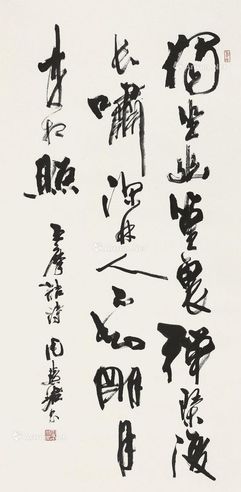 獨坐幽篁裏彈琴復
長嘯深林人不知明月
來相照 王摩詰詩 周慧珺書